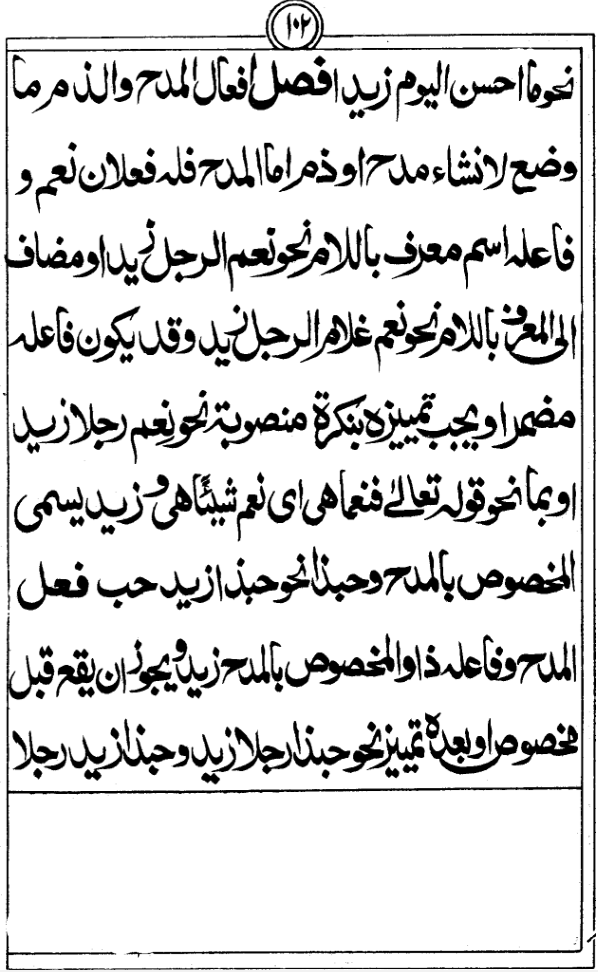 ۱۰۲
نحو ما احسن اليوم زيدا فصل افعال المدح والذم ما
وضع لانشاء مدح او ذم اما المدح فله فعلان نعم و
فاعله اسم معرف باللام نحو نعم الرجل زيد او مضاف
الى المعرف باللام نحو نعم غلام الرجل زيد وقد يكون فاعله
مضمرا ويجب تمييزه بنكرة منصوبة نحو نعم رجلا زيد
او بما نحو قوله تعالىٰ فنعما هي اى نعم شيئًا هي و زيد يسمى
المخصوص بالمدح وحبذا نحو حبذا زيد حب فعل
المدح وفاعله ذا والمخصوص بالمدح زيد ويجوز ان يقع قبل
مخصوص او بعده تمييز نحو حبذا رجلا زيد وحبذا زيد رجلا